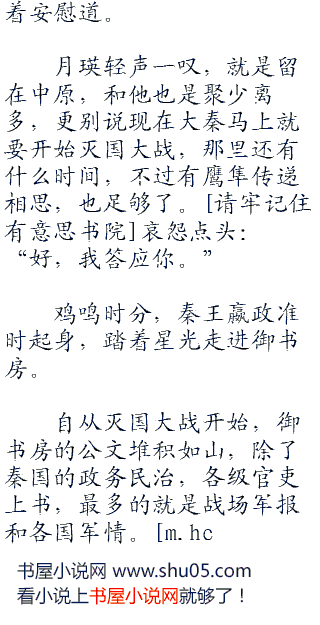 着安慰道。
月瑛轻声一叹，就是留
在中原，和他也是聚少离
多，更别说现在大秦马上就
要开始灭国大战，那里还有
什么时间，不过有鹰隼传递
相思，也足够了。[请牢记住
有意思书院]哀怨点头:
“好，我答应你。”
鸡鸣时分，秦王嬴政准
时起身，踏着星光走进御书
房。
自从灭国大战开始，御
书房的公文堆积如山，除了
秦国的政务民治，各级官吏
上书，最多的就是战场军报
和各国军情。[m.hc
书屋小说网 www.shu05.com
看小说上书屋小说网就够了！